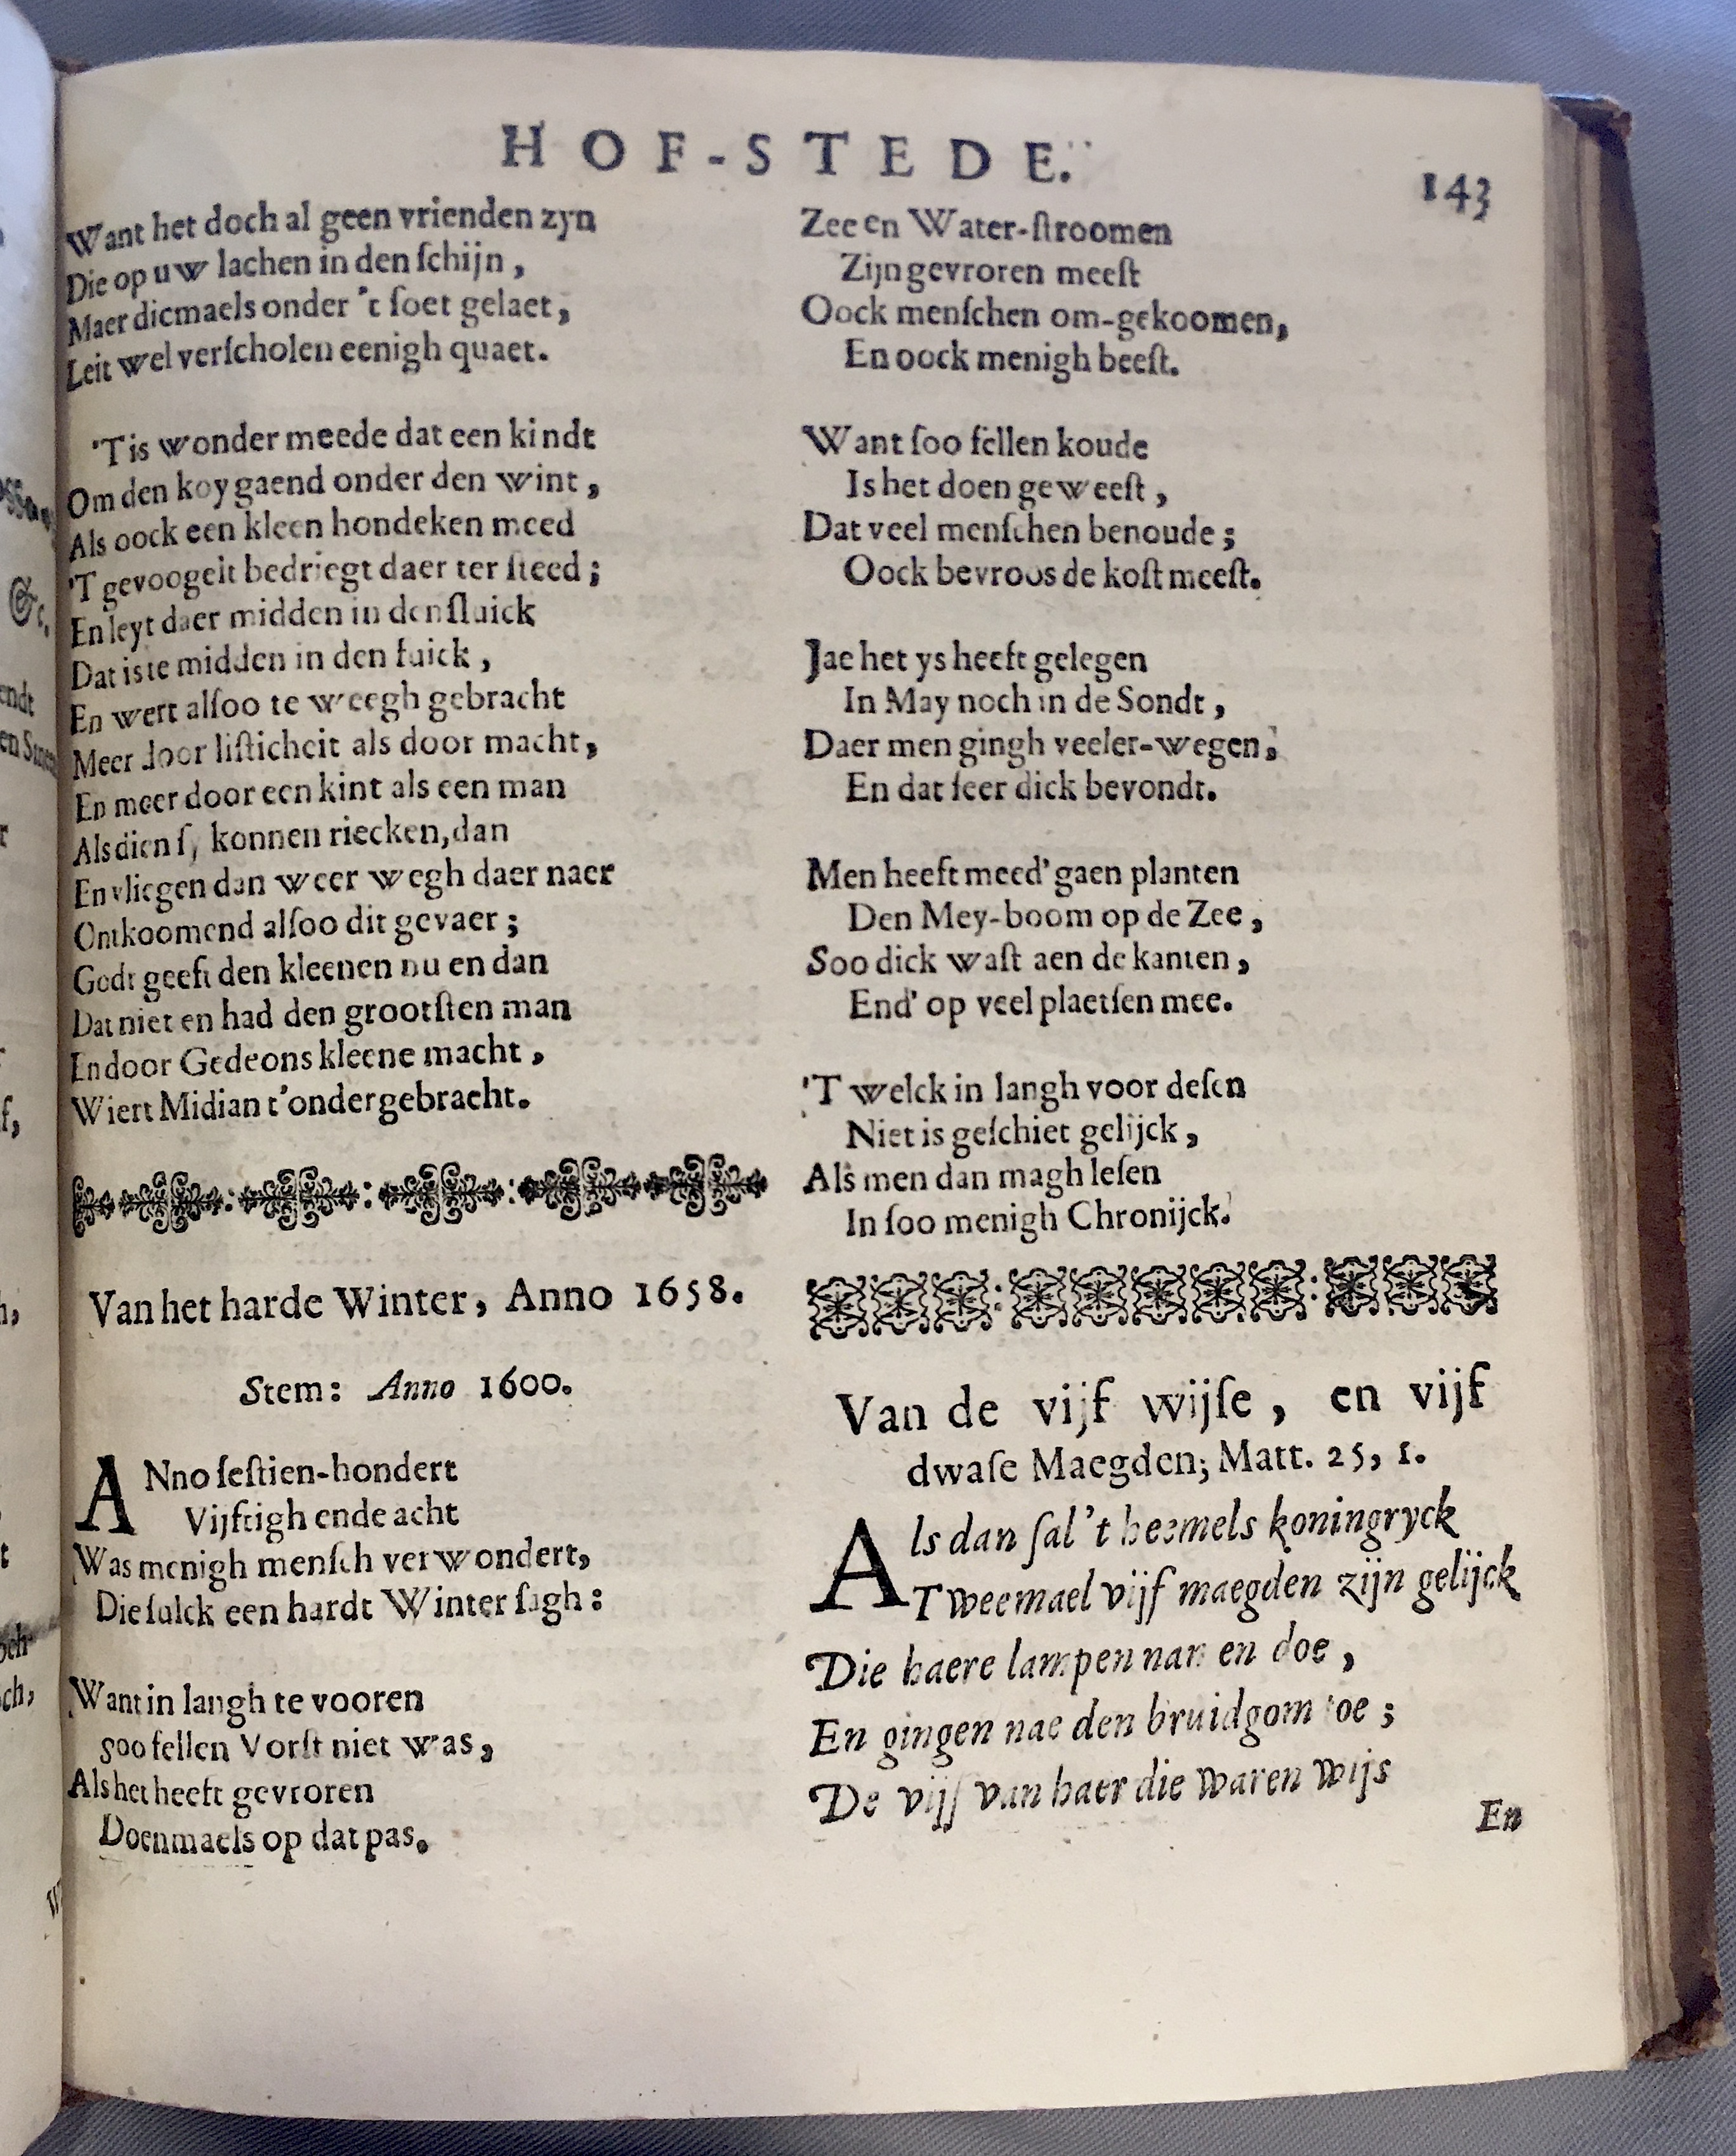 HOF-STEDE.
143
Want het doch al geen vrienden zyn
Die op uw lachen in den ſchijn,
Maer dicmaels onder 't ſoet gelaet,
Leit wel verſcholen eenigh quaet.
'Tis wonder meede dat een kindt
Om den koy gaend onder den wint,
Als oock een kleen hondeken meed
'T gevoogelt bedriegt daer ter steed;
En leyt daer midden in den ſluick
Dat is te midden in den fuick,
En wert alſoo te weegh gebracht
Meer door liſticheit als door macht,
En meer door een kint als een man
Als dien ſy konnen riecken, dan
En vliegen dan weer wegh daer naer
Ontkoomend alſoo dit gevaer;
Godt geeft den kleenen nu en dan
Dat niet en had den grootſten man
En door Gedeons kleene macht,
Wiert Midian t'ondergebracht.
Van het harde Winter, Anno 1658.
Stem: Anno 1600.
ANno ſeſtien-hondert
Vijftigh ende acht
Was menigh menſch verwondert,
Die ſulck een hardt Winter ſagh:
Want in langh te vooren
Soo fellen Vorſt niet was,
Als het heeft gevroren
Doenmaels op dat pas.
Zee en Water-ſtroomen
Zijn gevroren meeſt
Oock menſchen om-gekoomen,
En oock menigh beeſt.
Want ſoo fellen koude
Is het doen geweeſt,
Dat veel menſchen benoude;
Oock bevroos de koſt meeſt.
Jae het ys heeft gelegen
In May noch in de Sondt,
Daer men gingh veeler-wegen,
En dat ſeer dick bevondt.
Men heeft meed' gaen planten
Den Mey-boom op de Zee,
Soo dick waſt aen de kanten,
End' op veel plaetſen mee.
'T welck in langh voor deſen
Niet is geſchiet gelijck,
Als men dan magh leſen
In ſoo menigh Chronijck.
Van de vijf wijſe, en vijf
dwaſe Maegden; Matt. 25, 1.
Als dan ſal 't heemels koningryck
Tweemael vijf maegden zijn gelijck
Die haere lampen nan en doe,
En gingen nae den bruidgom toe;
De vijf van haer die waren wijs
En